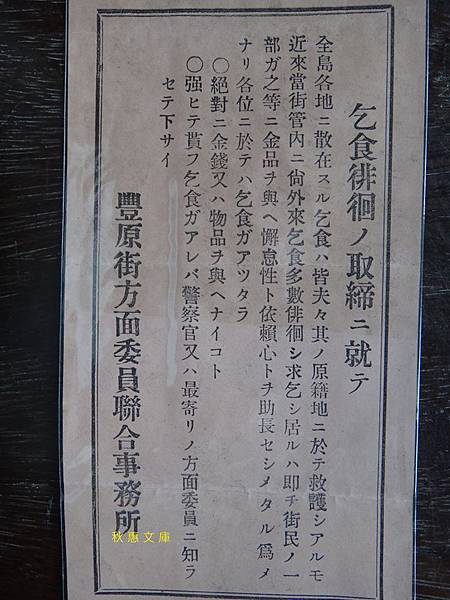 乞食徘徊ノ取締ニ就テ
全島各地ニ散在スル乞食ハ皆夫々其ノ原籍地ニ於テ救護シアルモ
近來當街管內ニ尙外來乞食多數徘徊シ求乞シ居ルハ卽チ街民ノ一
部ガ之等ニ金品ヲ與ヘ懈怠性ト依賴心トヲ助長セシメタル爲メ
ナリ各位ニ於テハ乞食ガアツタラ
〇絕對ニ金錢又ハ物品ヲ與ヘナイコト
〇强ヒテ貰フ乞食ガアレバ警察官又ハ最寄リノ方面委員ニ知ラ
セテ下サイ
豐原街方面委員聯合事務所
秋惠文庫